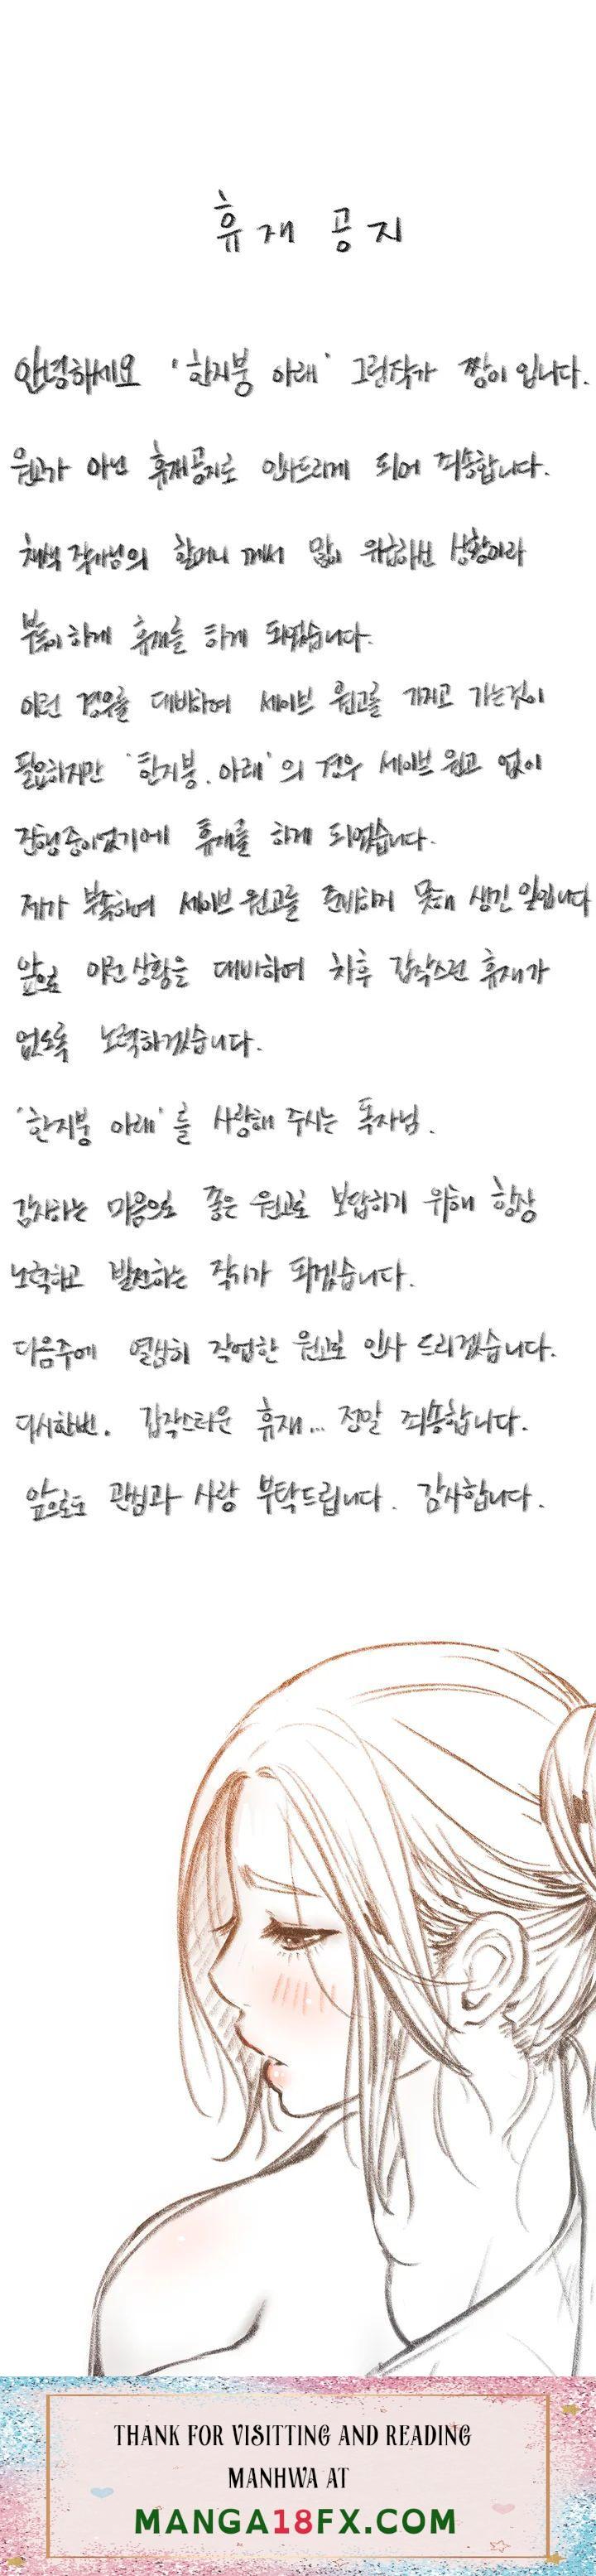 휴재 공지
안녕하세요 '한지붕 아래' 그림작가 짱이 입니다.
원고가 아닌 휴재공지로 인사드리게 되어 죄송합니다.
채색 작가님의 할머니 께서 많이 위급하신 상황이라
부득이하게 휴재를 하게 되었습니다.
이런 경우를 대비하여 세이브 원고를 가지고 가는것이
필요하지만 '한지붕 아래'의 경우 세이브 원고 없이
진행중이었기에 휴재를 하게 되었습니다.
제가 부족하여 세이브 원고를 준비하지 못해 생긴 일입니다
앞으로 이런 상황을 대비하여 차후 갑작스런 휴재가
없도록 노력하겠습니다.
'한지붕 아래'를 사랑해 주시는 독자님.
감사하는 마음으로 좋은 원고로 보답하기 위해 항상
노력하고 발전하는 작가가 되겠습니다.
다음주에 열심히 작업한 원고로 인사 드리겠습니다.
다시한번. 갑작스러운 휴재... 정말 죄송합니다.
앞으로도 관심과 사랑 부탁드립니다. 감사합니다.
THANK FOR VISITTING AND READING
MANHWA AT
MANGA18FX.COM